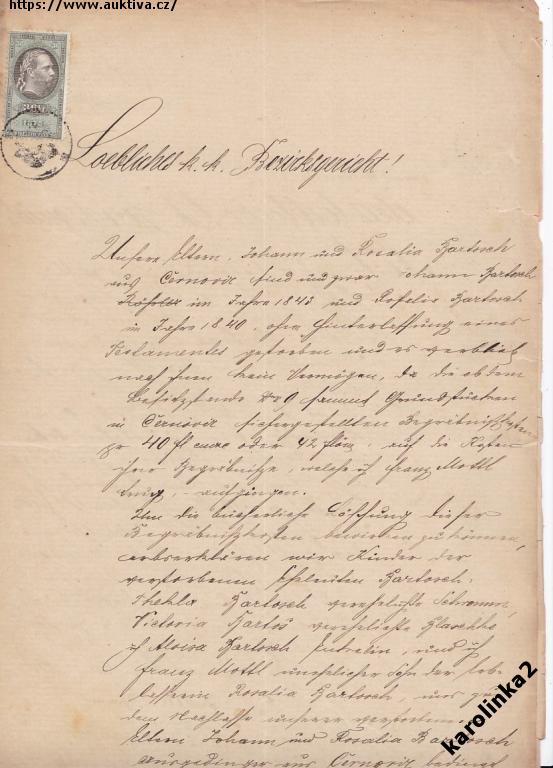 https://www.auktiva.cz/
Loebliches k. k. Bezirksgericht!
Unsere Eltern, Johann und Rosalia Bartosch
aus Černovic sind und zwar Johann Bartosch
im Jahre 1843 und Rosalia Bartosch
im Jahre 1840, ohne Hinterlassung eines
Testamentes gestorben und es verblieb
nach ihnen kein Vermögen, da die ob dem
Besitzstande No 9 sammt Grundstücken
in Černovic sichergestellten Begräbnißkosten
pr 40 fl oder 42 auf die Kosten
ihrer Begräbniße, welche ich Franz Mottl
trug, aufgingen.
Um die bücherliche Löschung dieser
Begräbnißkosten bewirken zu können,
wir Kinder der
verstorbenen Eheleuten Bartosch,
Thekla Bartosch verehelichte Schramm,
Victoria Bartoš verehelichte Blaschke
ich Aloisia Bartosch und ich
Franz Mottl unehelicher Sohn der
Rosalia Bartosch, uns
dem Nachlasse unserer verstorbenen
Eltern Johann und Rosalia Bartosch
Ausgedinger aus Černovic
karolinka2